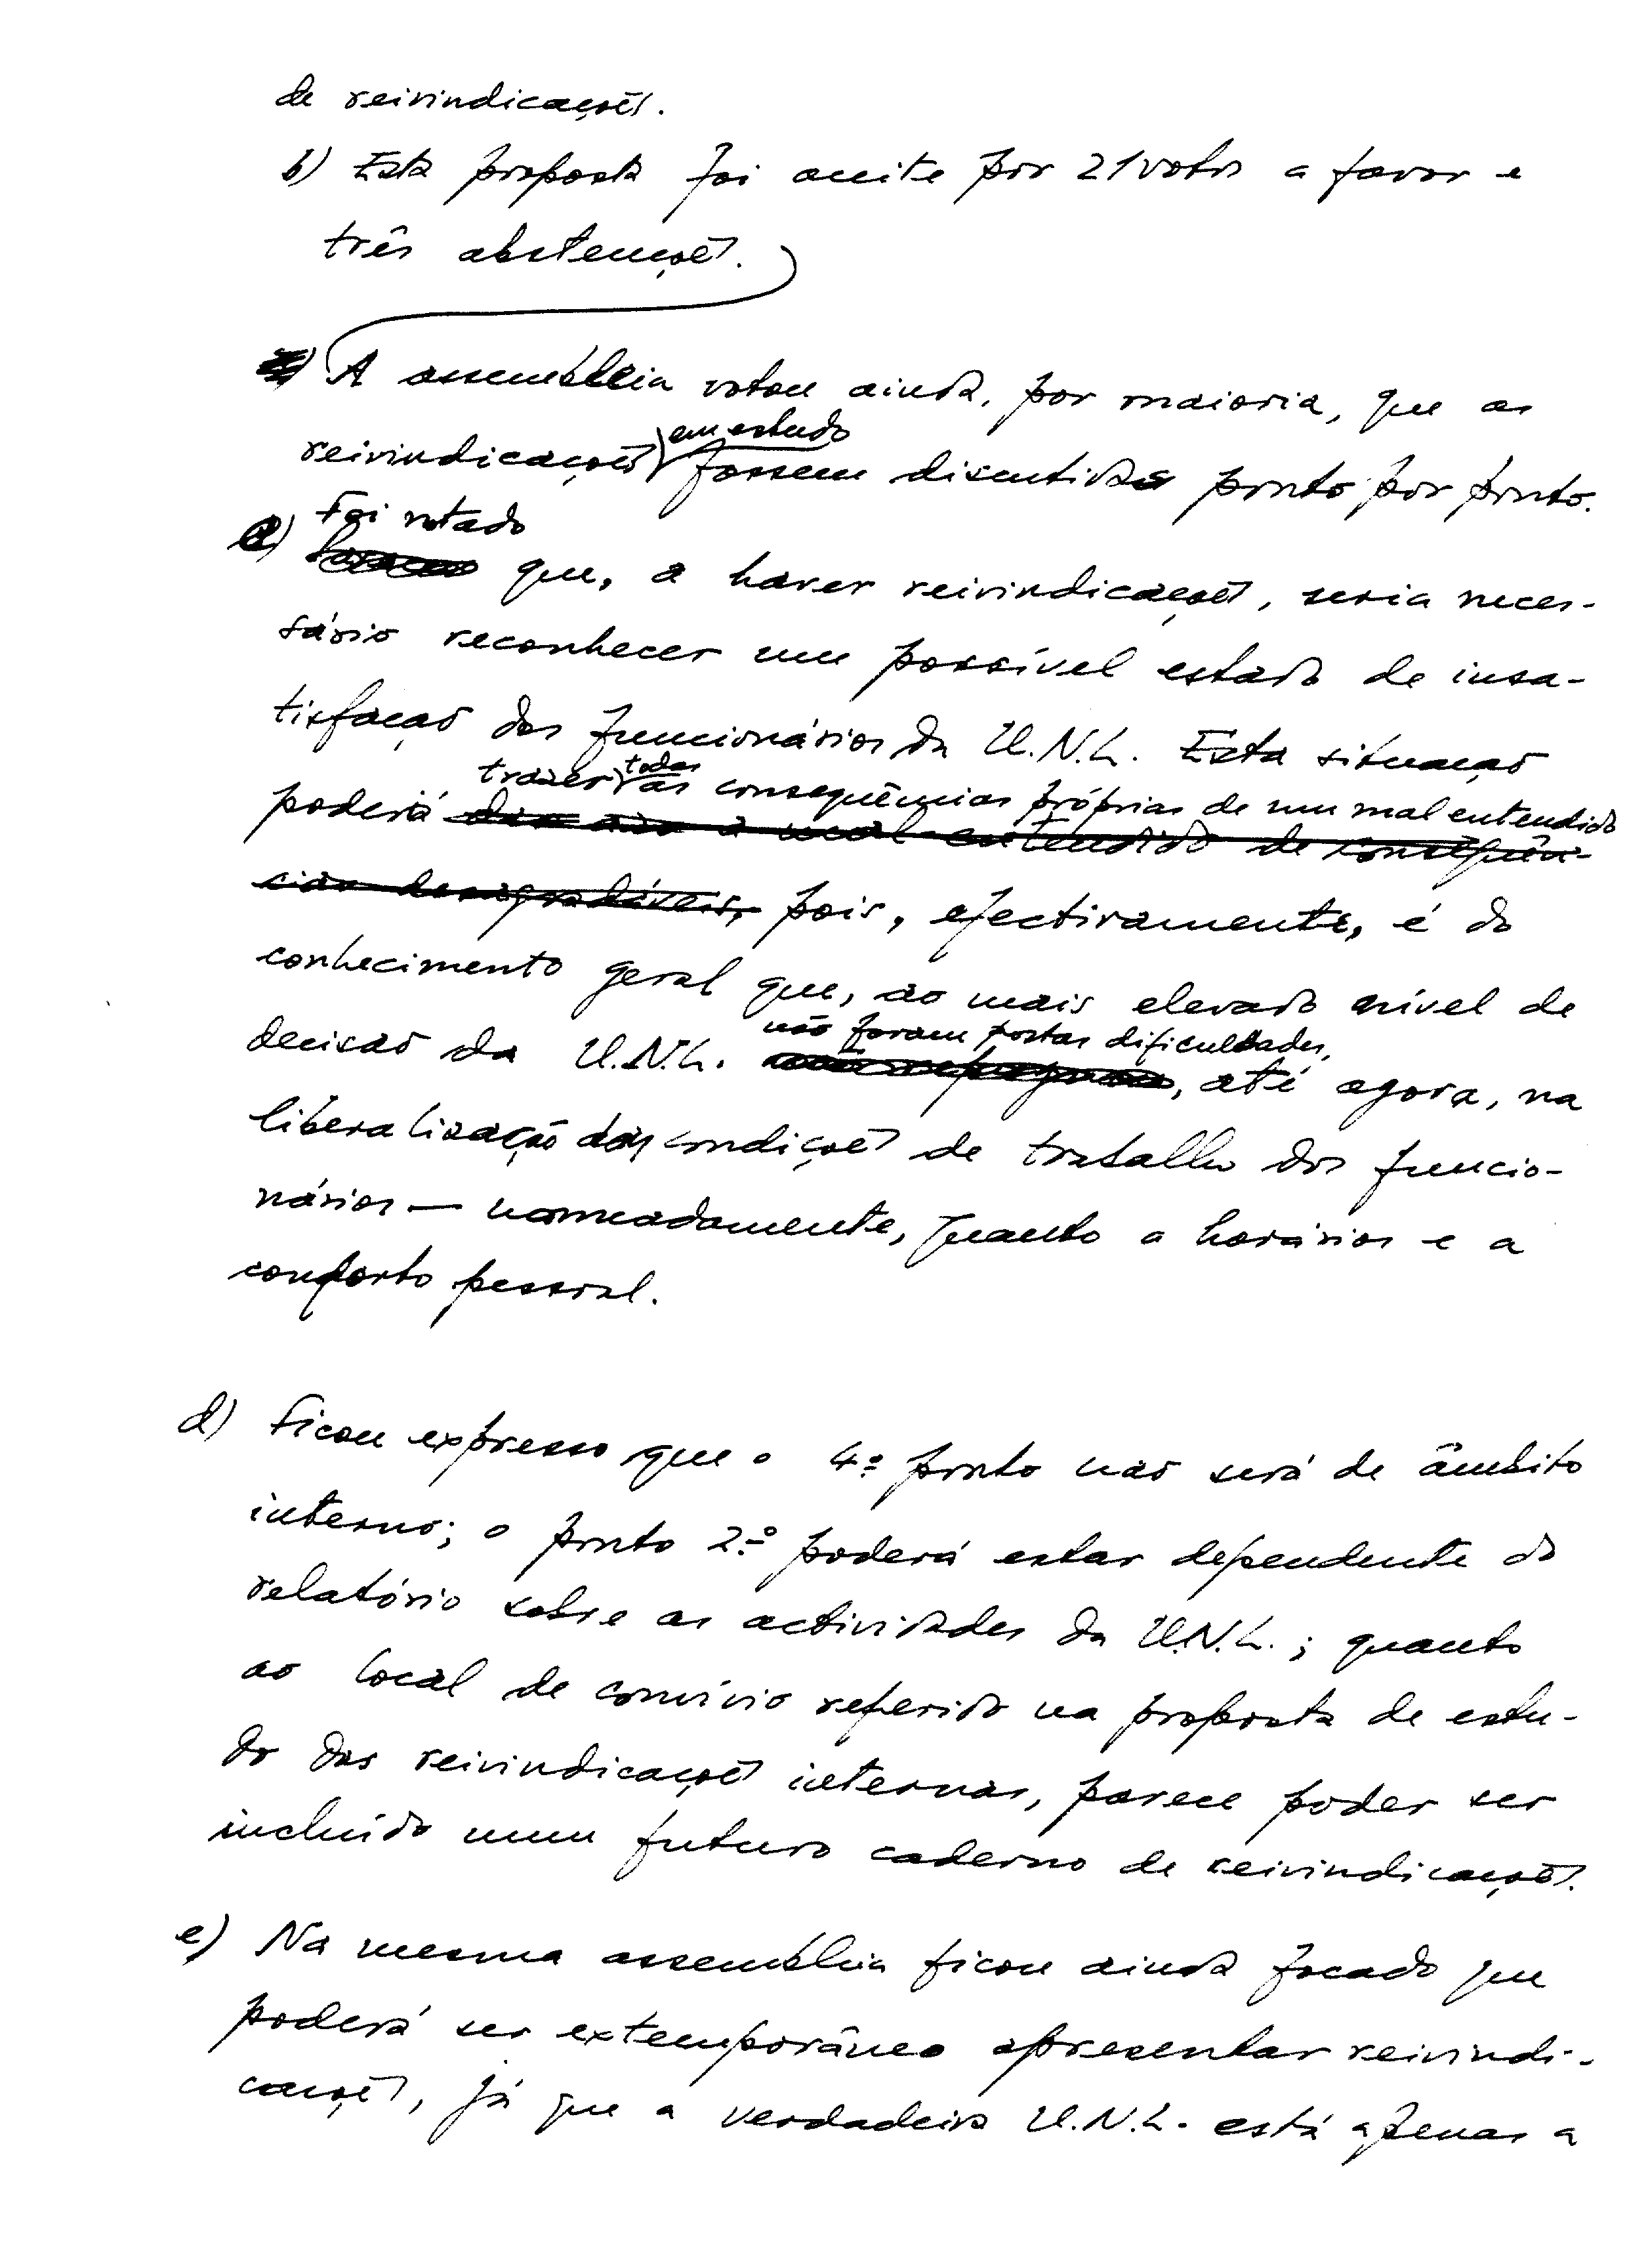 de reivindicações.
b) Esta proposta foi aceite por 21 votos a favor e
três abstenções.
A assembleia votou ainda, por maioria, que as
em estudo
reivindicações fossem discutidas ponto por ponto.
Foi notado
c) que, a haver reivindicações, seria neces-
sário reconhecer um possível estado de insa-
tisfação dos funcionários da U.N.L. Esta situação
trazer todas as consequências próprias de um mal entendido
poderá dar azo a mal entendido de consequên-
cias desagradáveis, pois, efectivamente, é do
conhecimento geral que, ao mais elevado nível de
não foram postas dificuldades,
decisão da U.N.L. , até agora, na
liberalização das condições de trabalho dos funcio-
nários — nomeadamente, quanto a horários e a
conforto pessoal.
d) Ficou expresso que o 4º ponto não será de âmbito
interno; o ponto 2.º poderá estar dependente do
relatório sobre as actividades da U.N.L.; quanto
ao local de convívio referido na proposta de estu-
do das reivindicações internas, parece poder ser
incluído num futuro caderno de reivindicações.
e) Na mesma assembleia ficou ainda focado que
poderá ser extemporâneo apresentar reivindi-
cações, já que a verdadeira U.N.L. está apenas a